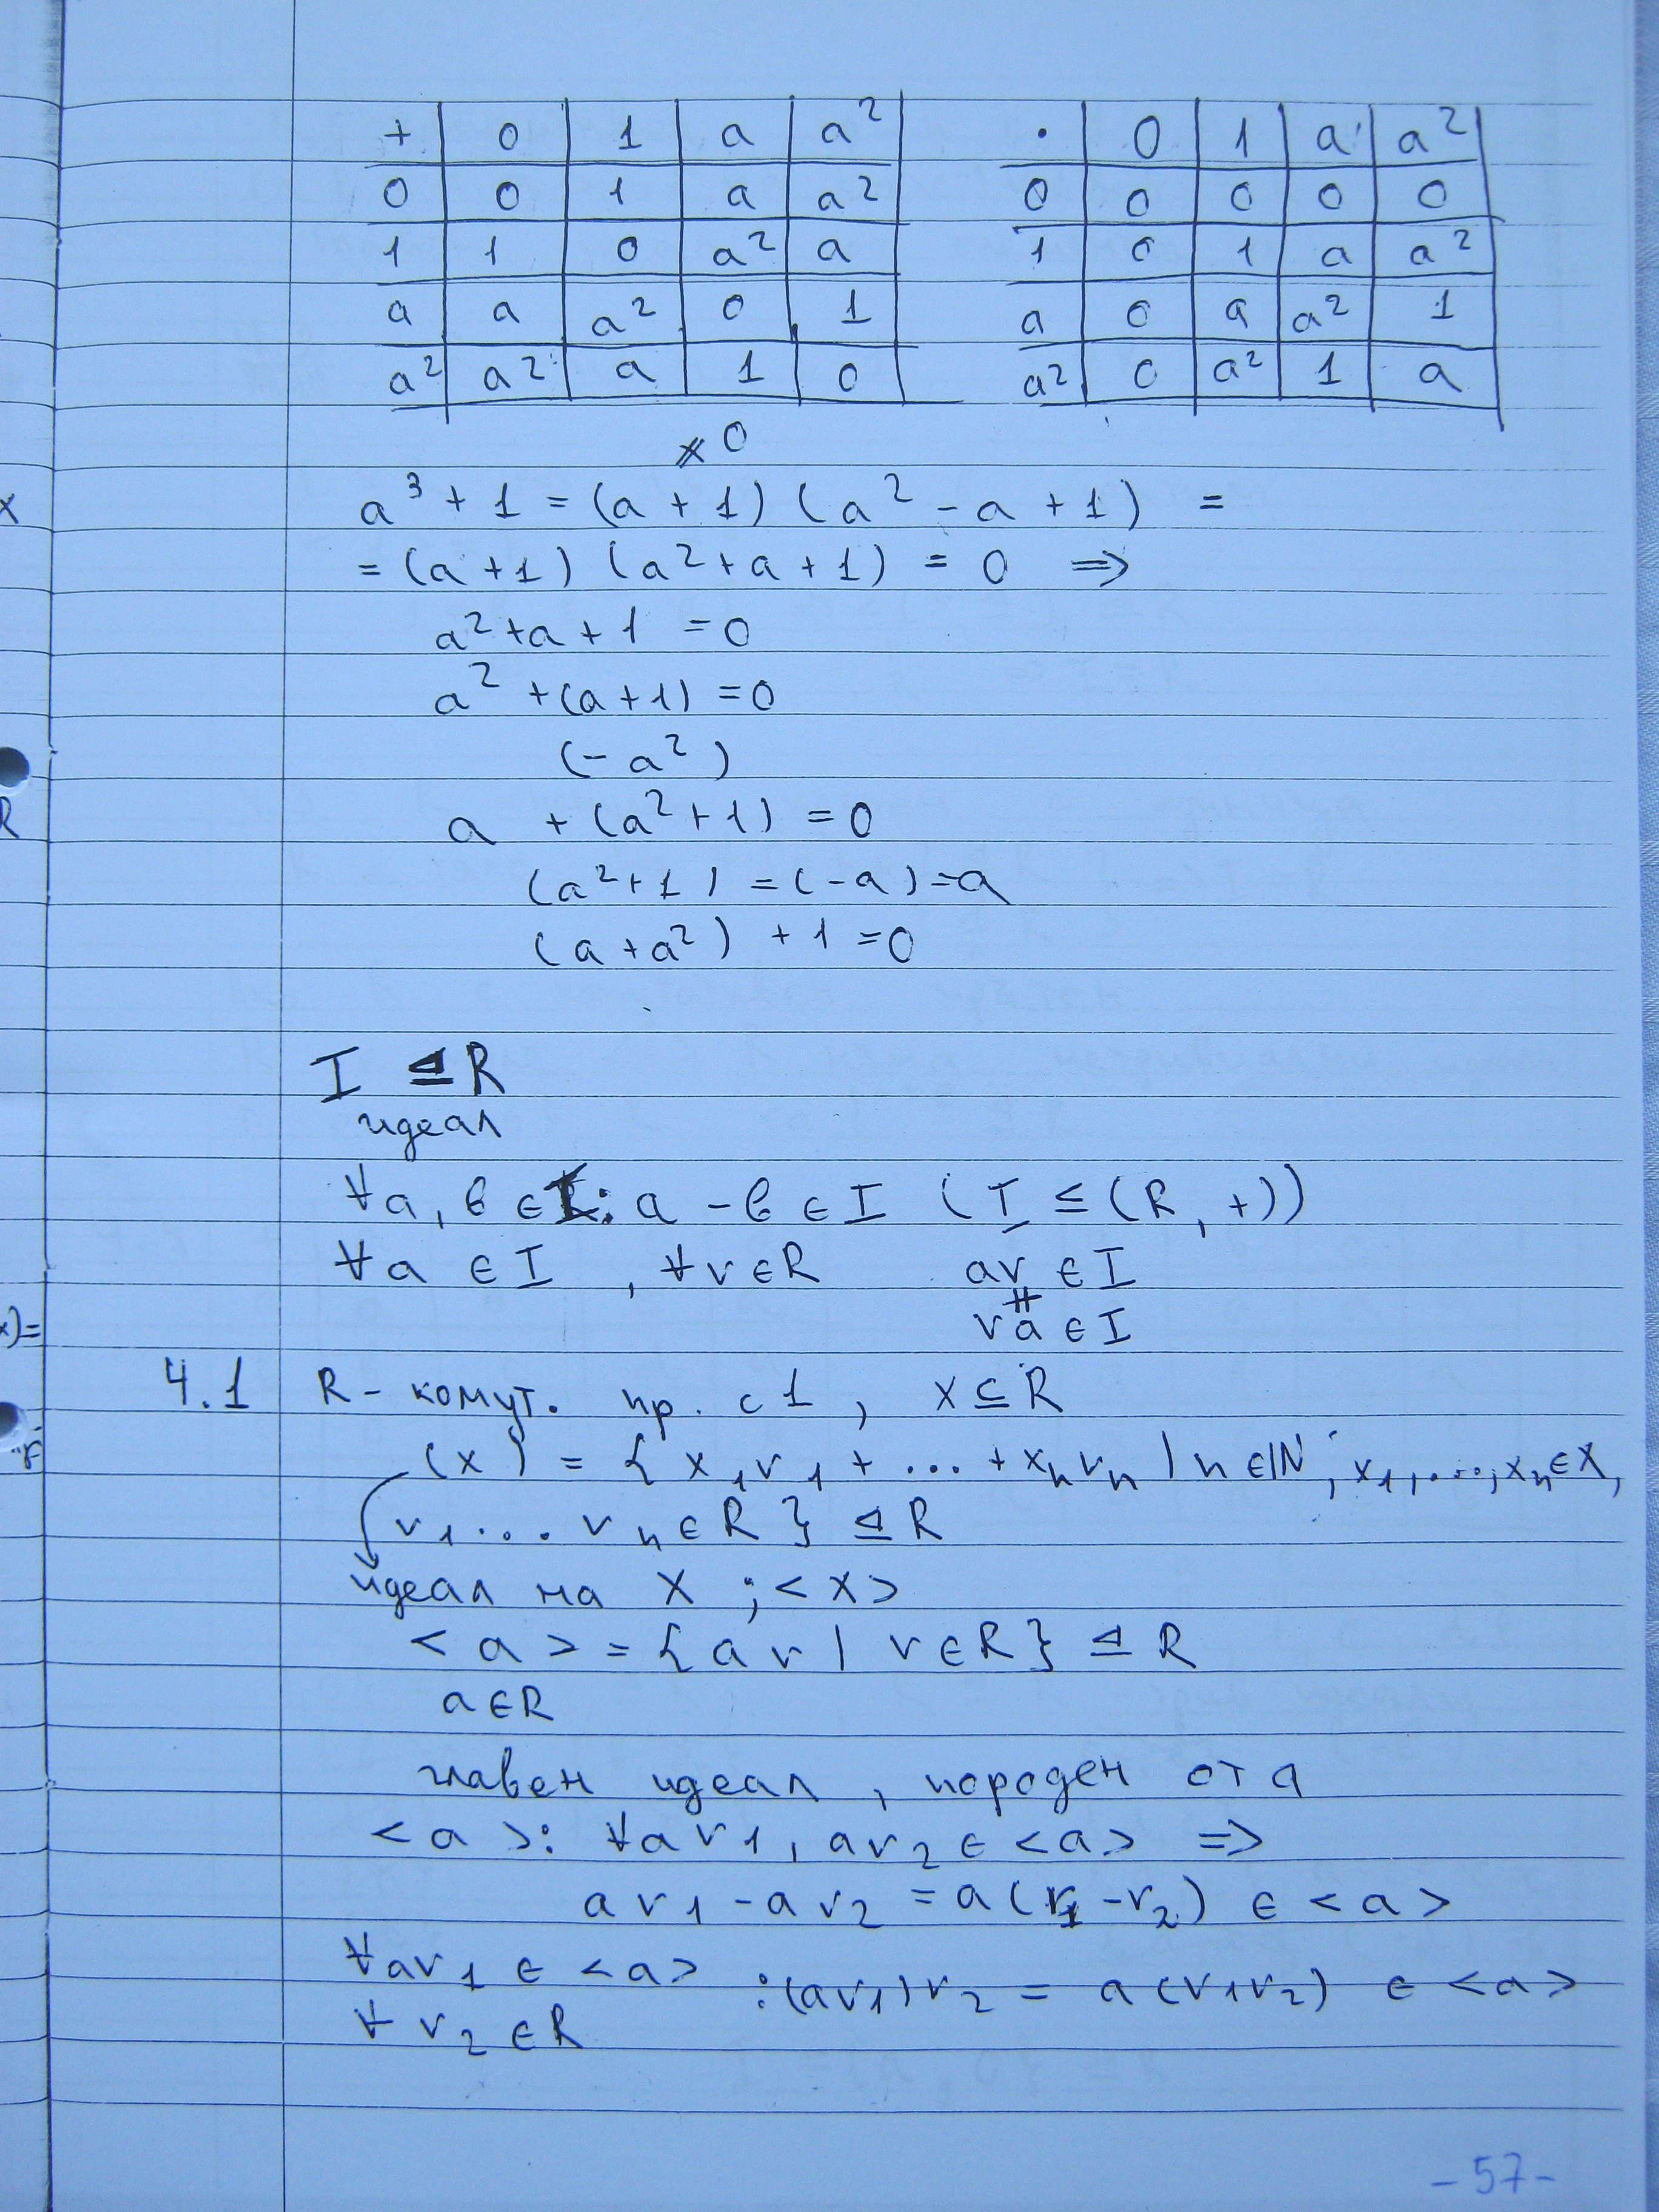 + 0 1 a a² · 0 1 a a²
0 0 1 a a² 0 0 0 0 0
1 1 0 a² a 1 0 1 a a²
a a a² 0 1 a 0 a a² 1
a² a² a 1 0 a² 0 a² 1 a
≠ 0
a³ + 1 = (a + 1) (a² - a + 1) =
= (a + 1) (a² + a + 1) = 0 ⇒
a² + a + 1 = 0
a² + (a + 1) = 0
(-a²)
a + (a² + 1) = 0
(a² + 1) = (-a) = a
(a + a²) + 1 = 0
I ⊴ R
идеал
∀a, b ∈ I: a - b ∈ I (I ≤ (R, +))
∀a ∈ I, ∀r ∈ R ar ∈ I
ra ∈ I
4.1 R - комут. пр. с 1, X ⊆ R
(X) = { x₁r₁ + ... + xₙrₙ | n ∈ ℕ, x₁, ..., xₙ ∈ X,
r₁ ... rₙ ∈ R } ⊴ R
идеал на X ; <X>
<a> = { ar | r ∈ R } ⊴ R
a ∈ R
главен идеал, породен от a
<a>: ∀ar₁, ar₂ ∈ <a> ⇒
ar₁ - ar₂ = a(r₁ - r₂) ∈ <a>
∀ar₁ ∈ <a> : (ar₁)r₂ = a(r₁r₂) ∈ <a>
∀ r₂ ∈ R
- 57 -